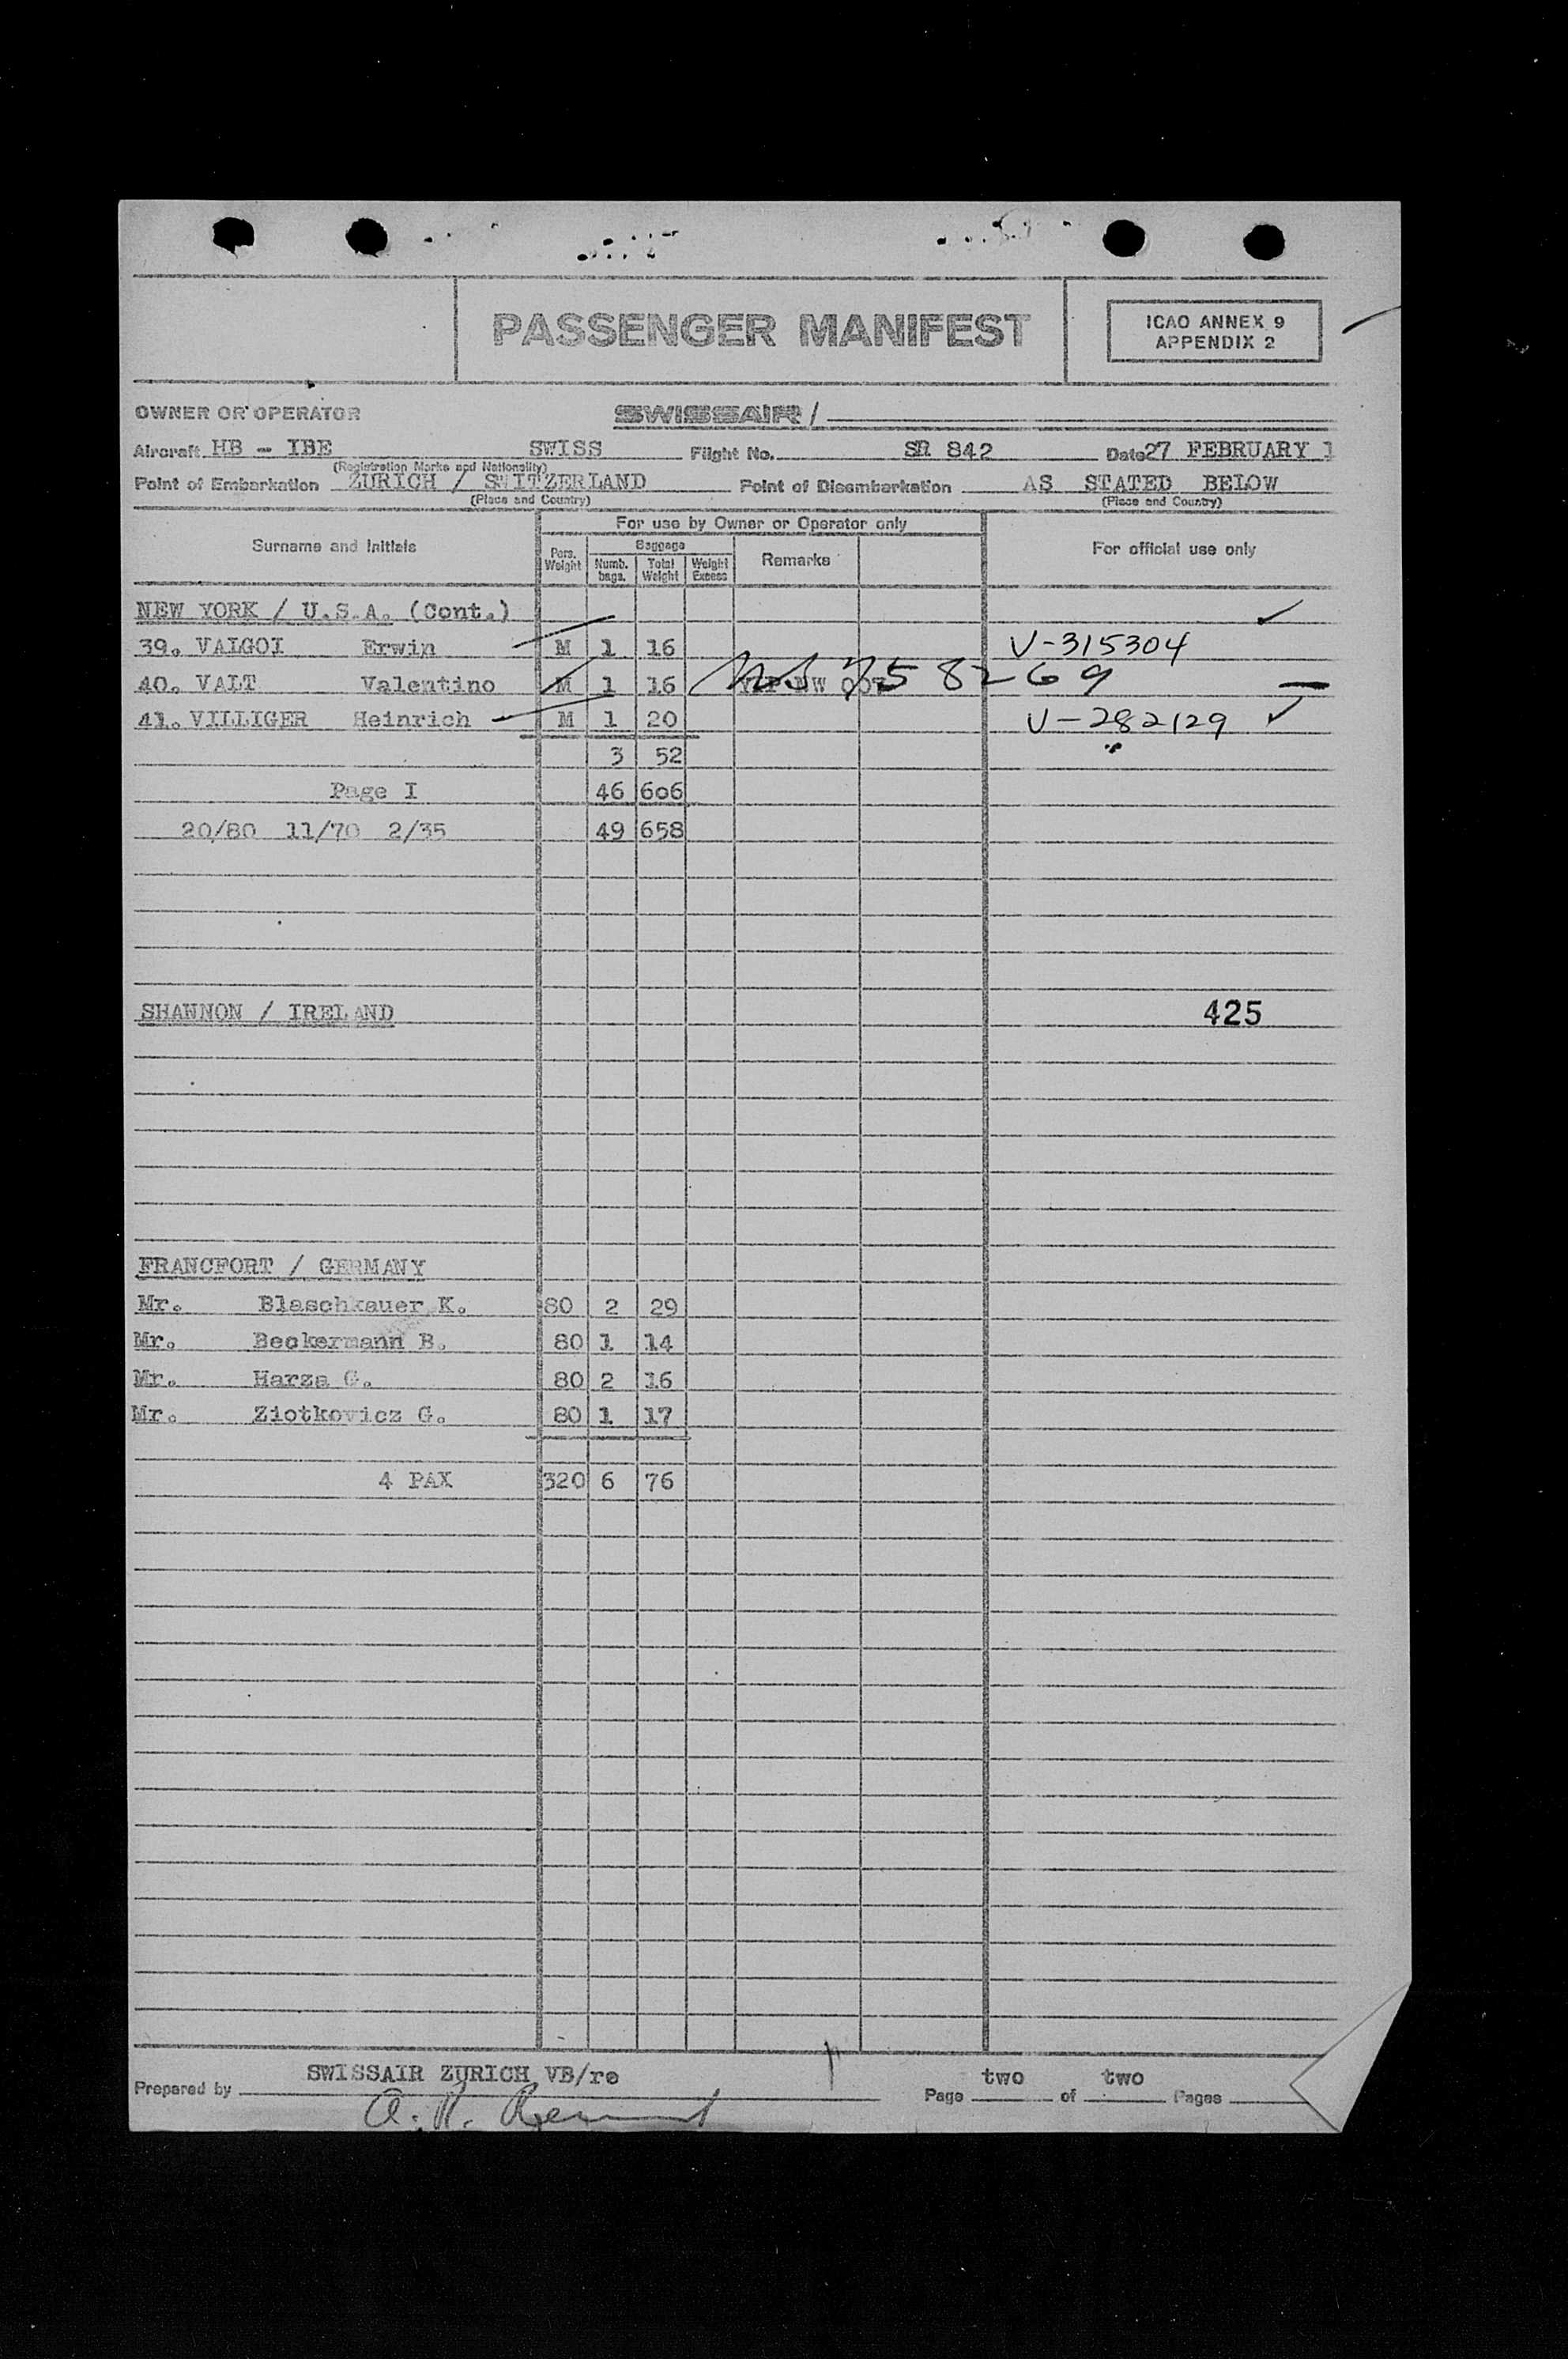 PASSENGER MANIFEST
ICAO ANNEX 9
APPENDIX 2
OWNER OR OPERATOR SWISSAIR /
Aircraft HB - IBE SWISS Flight No. SR 842 Date 27 FEBRUARY 1
(Registration Marks and Nationality)
Point of Embarkation ZURICH / SWITZERLAND Point of Disembarkation AS STATED BELOW
(Place and Country) (Place and Country)
For use by Owner or Operator only
Surname and Initials Pers. Weight Baggage Numb. bags. Total Weight Weight Excess Remarks For official use only
NEW YORK / U.S.A. (Cont.)
39. VALGOI Erwin M 1 16 V-315304
40. VALT Valentino M 1 16 758269
41. VILLIGER Heinrich M 1 20 V-282129
3 52
Page I 46 606
20/80 11/70 2/35 49 658
SHANNON / IRELAND 425
FRANCFORT / GERMANY
Mr. Blaschkauer K. 80 2 29
Mr. Beckermann B. 80 1 14
Mr. Harza G. 80 2 16
Mr. Ziotkovicz G. 80 1 17
4 PAX 320 6 76
SWISSAIR ZURICH VB/re
Prepared by
Page two of two Pages